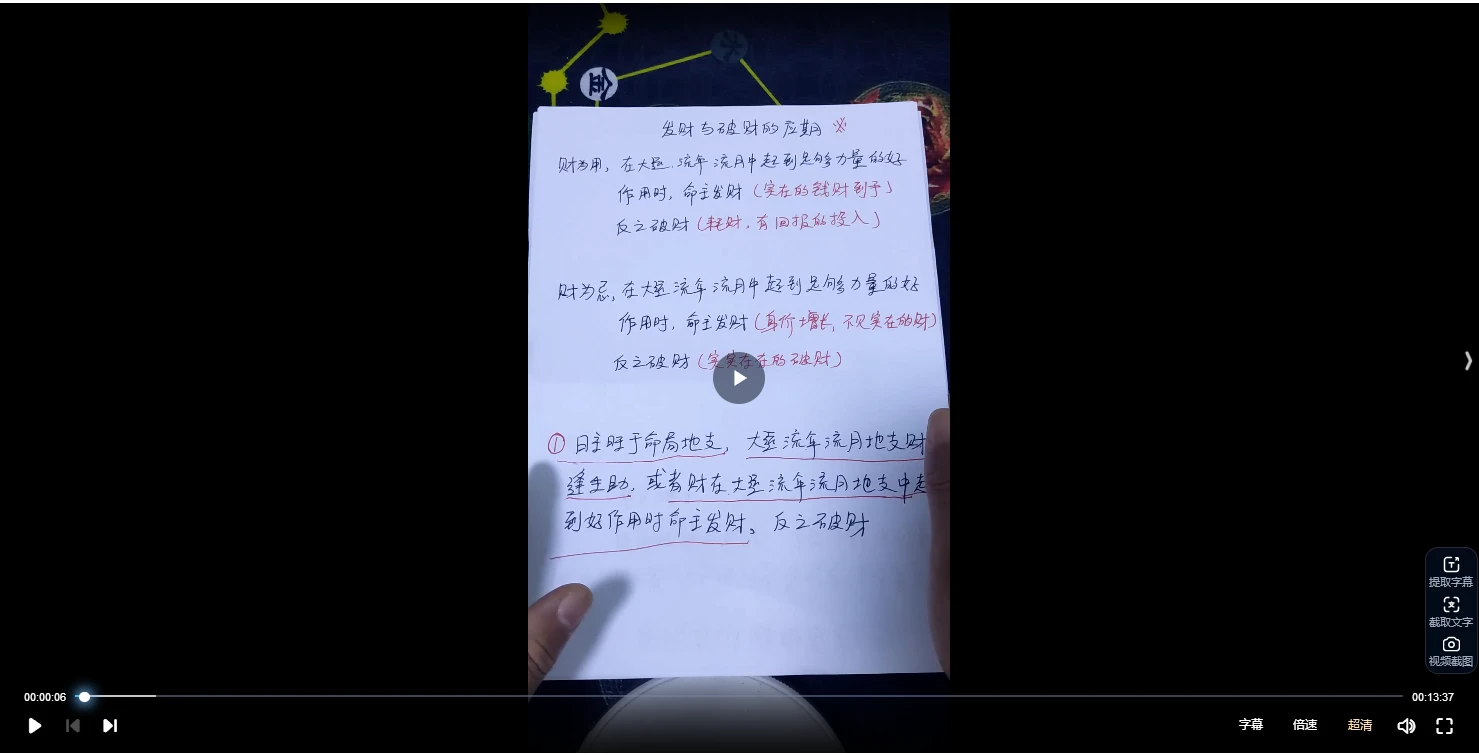 水
金
发财与破财的应期 ※
财为用，在大运．流年 流月中起到足够力量的好
作用时，命主发财（实在的钱财到手）
反之破财（耗财，有回报的投入）
财为忌，在大运 流年 流月中 起到足够力量的好
作用时，命主发财（身价增长，不见实在的财）
反之破财（实实在在的破财）
① 日主旺于命局地支，大运 流年 流月地支财
逢生助，或者财在大运 流年 流月 地支中起
到好作用时命主发财。反之破财
提取字幕
截取文字
视频截图
00:00:06
00:13:37
字幕
倍速
超清